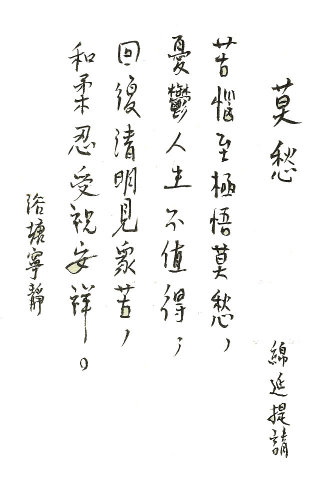 莫愁
綿延提請
苦惱至極悟莫愁,
憂鬱人生不值得,
回復清明見眾苦,
和柔忍受祝安祥。
浴塘寧靜